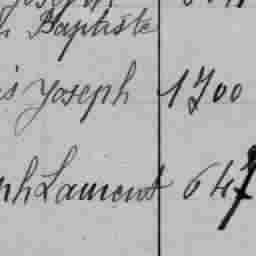 Baptiste
is Joseph 1700
ph Laurent 647